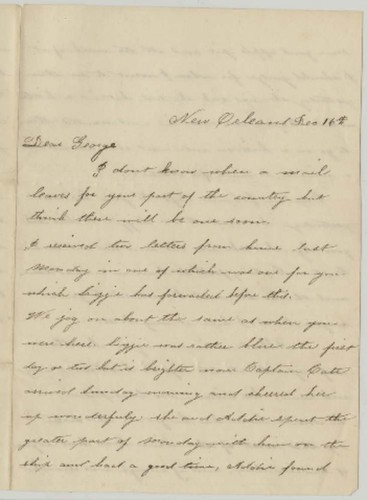 New Orleans Dec 16th
Dear George
I dont know when a mail
leaves for your part of the country but
think there will be one soon.
I received two letters from home last
Monday in one of which was one for you
which Lizzie has forwarded before this.
We jog on about the same as when you
were here Lizzie was rather blue the first
day or two but is brighter now Captain
arrived Sunday morning and cheered her
up wonderfuly she and Addie spent the
greater part of Monday with him on the
ship and had a good time, Addie found